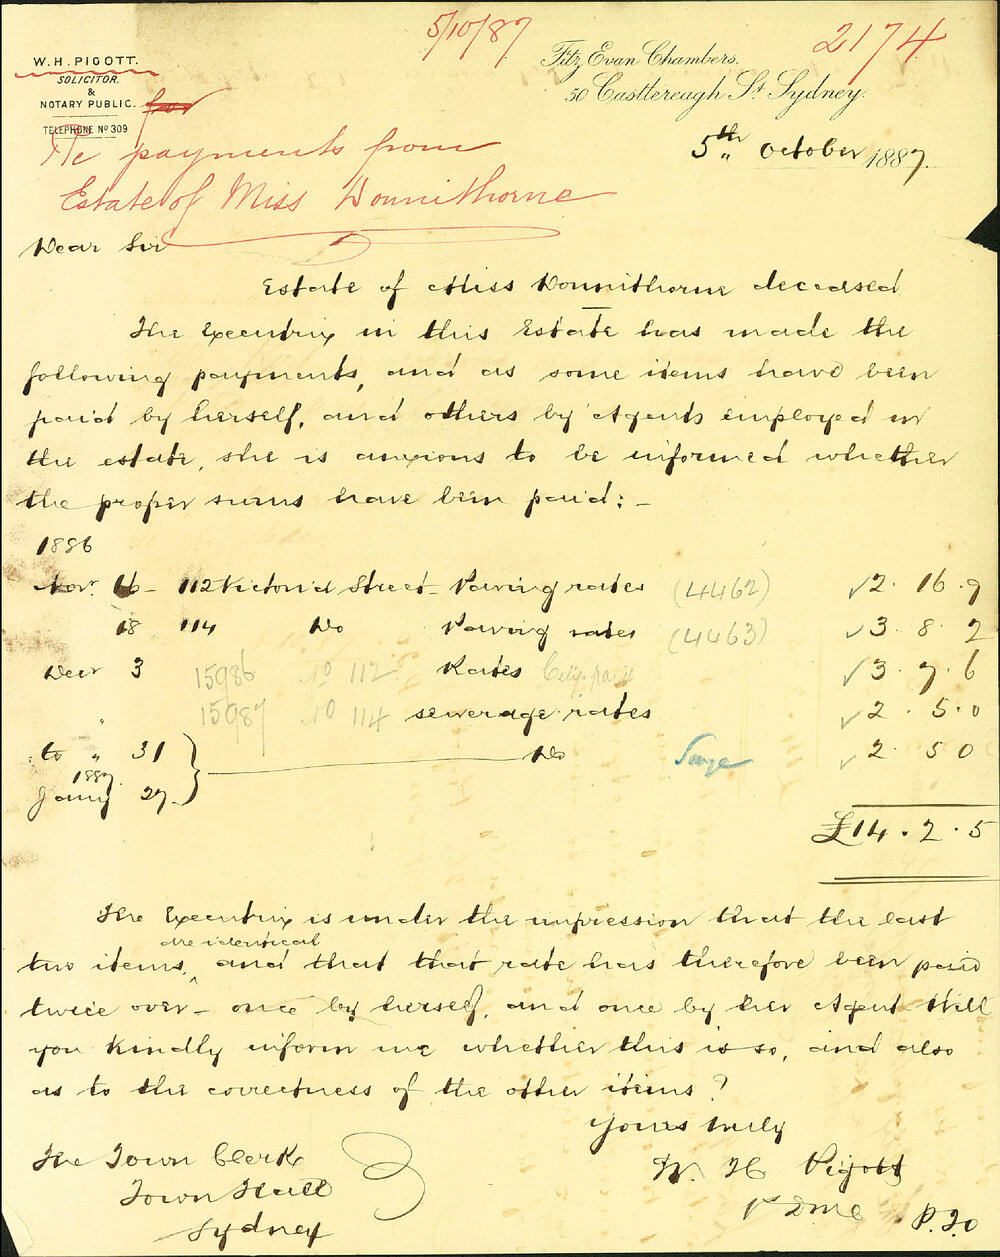 5/10/87
2174
W. H. PIGOTT.
SOLICITOR.
&
NOTARY PUBLIC.
TELEPHONE Nº 309
Fitz Evan Chambers.
50 Castlereagh St Sydney.
5th October 1887.
for
Re payments from
Estate of Miss Donnithorne
Dear Sir
Estate of Miss Donnithorne deceased
The Executrix in this Estate has made the
following payments, and as some items have been
paid by herself, and others by Agents employed in
the estate, she is anxious to be informed whether
the proper sums have been paid: -
1886
Novr 16 - 112 Victoria Street - Paving rates (4462) ✓ 2. 16. 9
18 114 Do Paving rates (4463) ✓ 3. 8. 2
Decr 3 15986 No 112 Rates City paid ✓ 3. 7. 6
" 15987 No 114 sewerage rates ✓ 2. 5. 0
to " 31 } Do ✓ 2. 5 0
1887
Jany 27
£14. 2. 5
The Executrix is under the impression that the last
two items ^ are identical, and that that rate has therefore been paid
twice over - once by herself, and once by her Agent Will
you kindly inform me whether this is so, and also
as to the correctness of the other items?
Yours truly
W. H. Pigott
The Town Clerk
Town Hall
Sydney
P.T.O